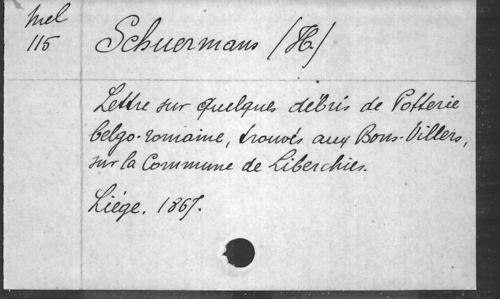 Mel
115
Schuermans (H.)
Lettre sur quelques débris de Potterie
belgo-romaine, trouvés aux Bons-Villers,
sur la Commune de Liberchies.
Liége, 1867.